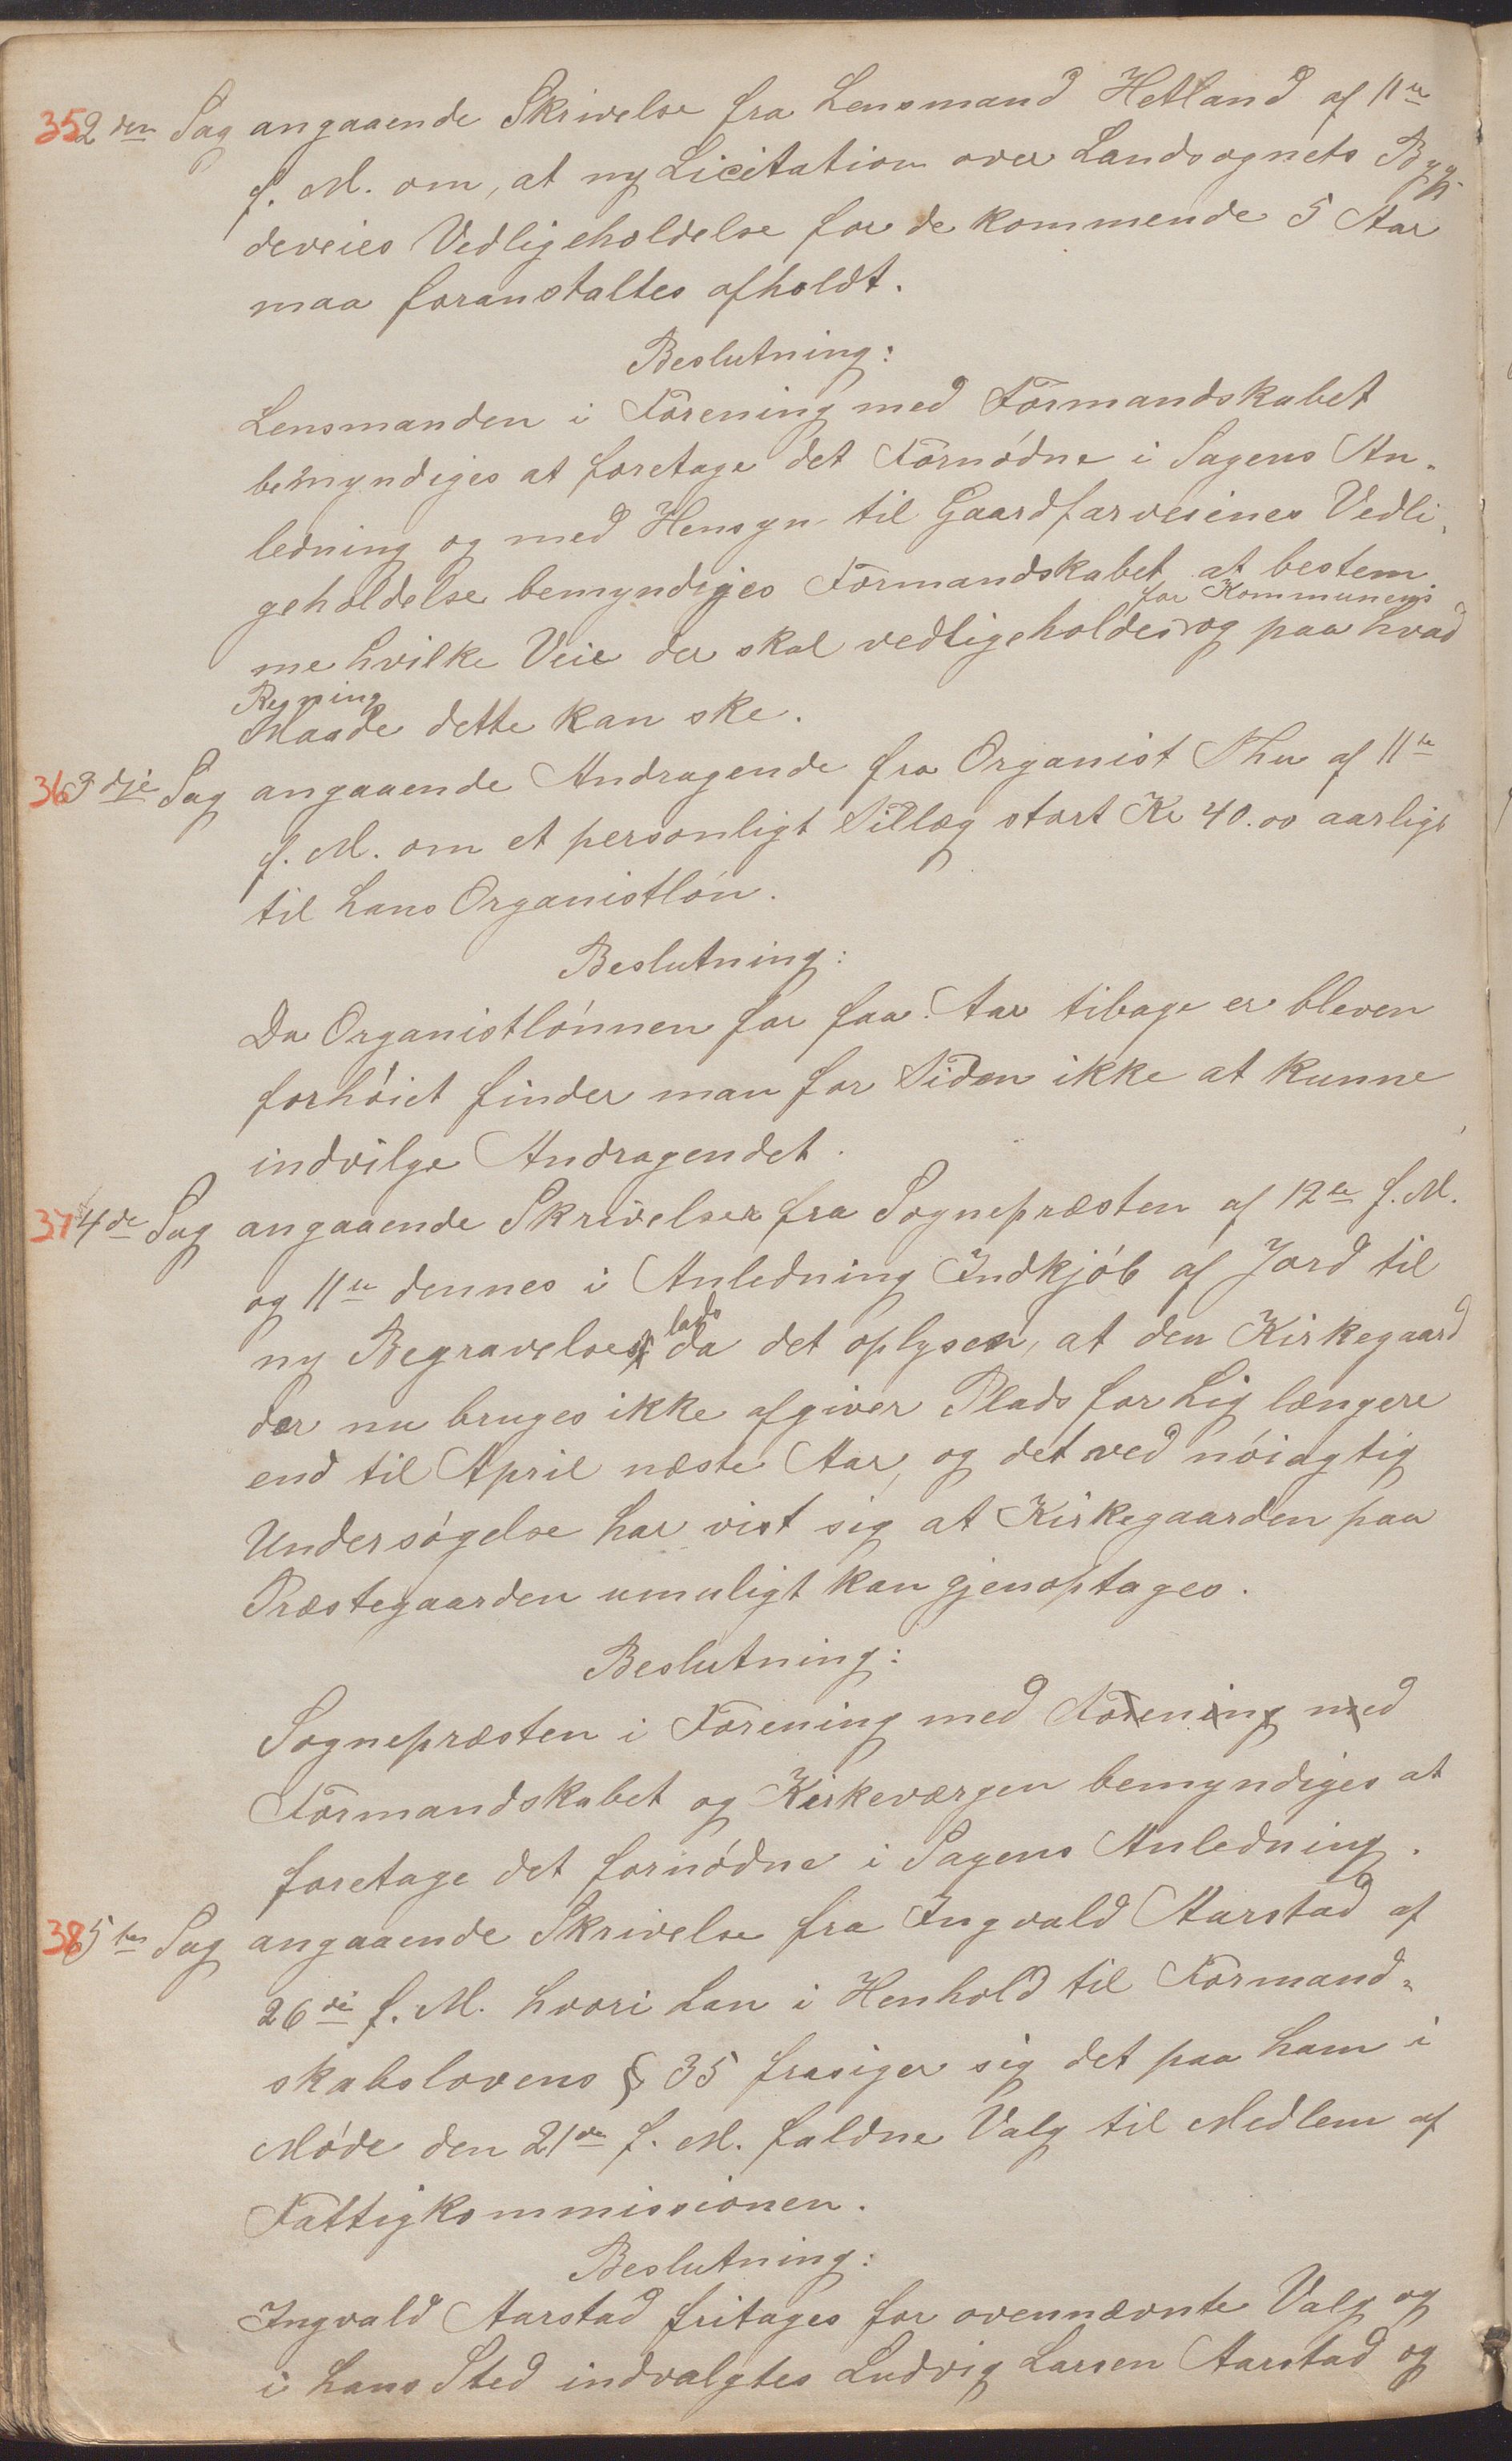 35 2den Sag angaaende Skrivelse fra Lensmand Hetland af 11te
f. M. om, at ny Licitation over Landsognets Byg-
deveies Vedligeholdelse for de kommende 5 Aar
maa foranstaltes afholdt.
Beslutning:
Lensmanden i Forening med Formandskabet
bemyndiges at foretage det Fornødne i Sagens An-
ledning og med Hensyn til Gaardfarveienes Vedli-
geholdelse bemyndiges Formandskabet at bestem
for Kommunens
me hvilke Veie der skal vedligeholdes og paa hvad
Regning
Maade dette kan ske.
36 3dje Sag angaaende Andragende fra Organist Thu af 11te
f. M. om et personligt Tillæg stort Kr 40.00 aarligt
til hans Organistløn.
Beslutning:
Da Organistlønnen for faa Aar tibage er bleven
forhøiet finder man for Tiden ikke at kunne
indvilge Andragendet.
37 4de Sag angaaende Skrivelser fra Sognepræsten af 12te f. M.
og 11te dennes i Anledning Indkjøb af Jord til
lads
ny Begravelsesp da det oplyses, at den Kirkegaard
der nu bruges ikke afgiver Plads for Lig længere
end til April næste Aar, og det ved nøiagtig
Undersøgelse har vist sig at Kirkegaarden paa
Præstegaarden umuligt kan gjenoptages.
Beslutning:
Sognepræsten i Forening med Forening med
Formandskabet og Kirkeværgen bemyndiges at
foretage det fornødne i Sagens Anledning.
38 5te Sag angaaende Skrivelse fra Ingvald Aarstad af
26de f. M. hvori han i Henhold til Formand-
skabslovens § 35 frasiger sig det paa ham i
Møde den 21de f. M. faldne Valg til Medlem af
Fattigkommissionen.
Beslutning:
Ingvald Aarstad fritages for ovennævnte Valg og
i hans Sted indvalgtes Ludvig Larsen Aarstad og